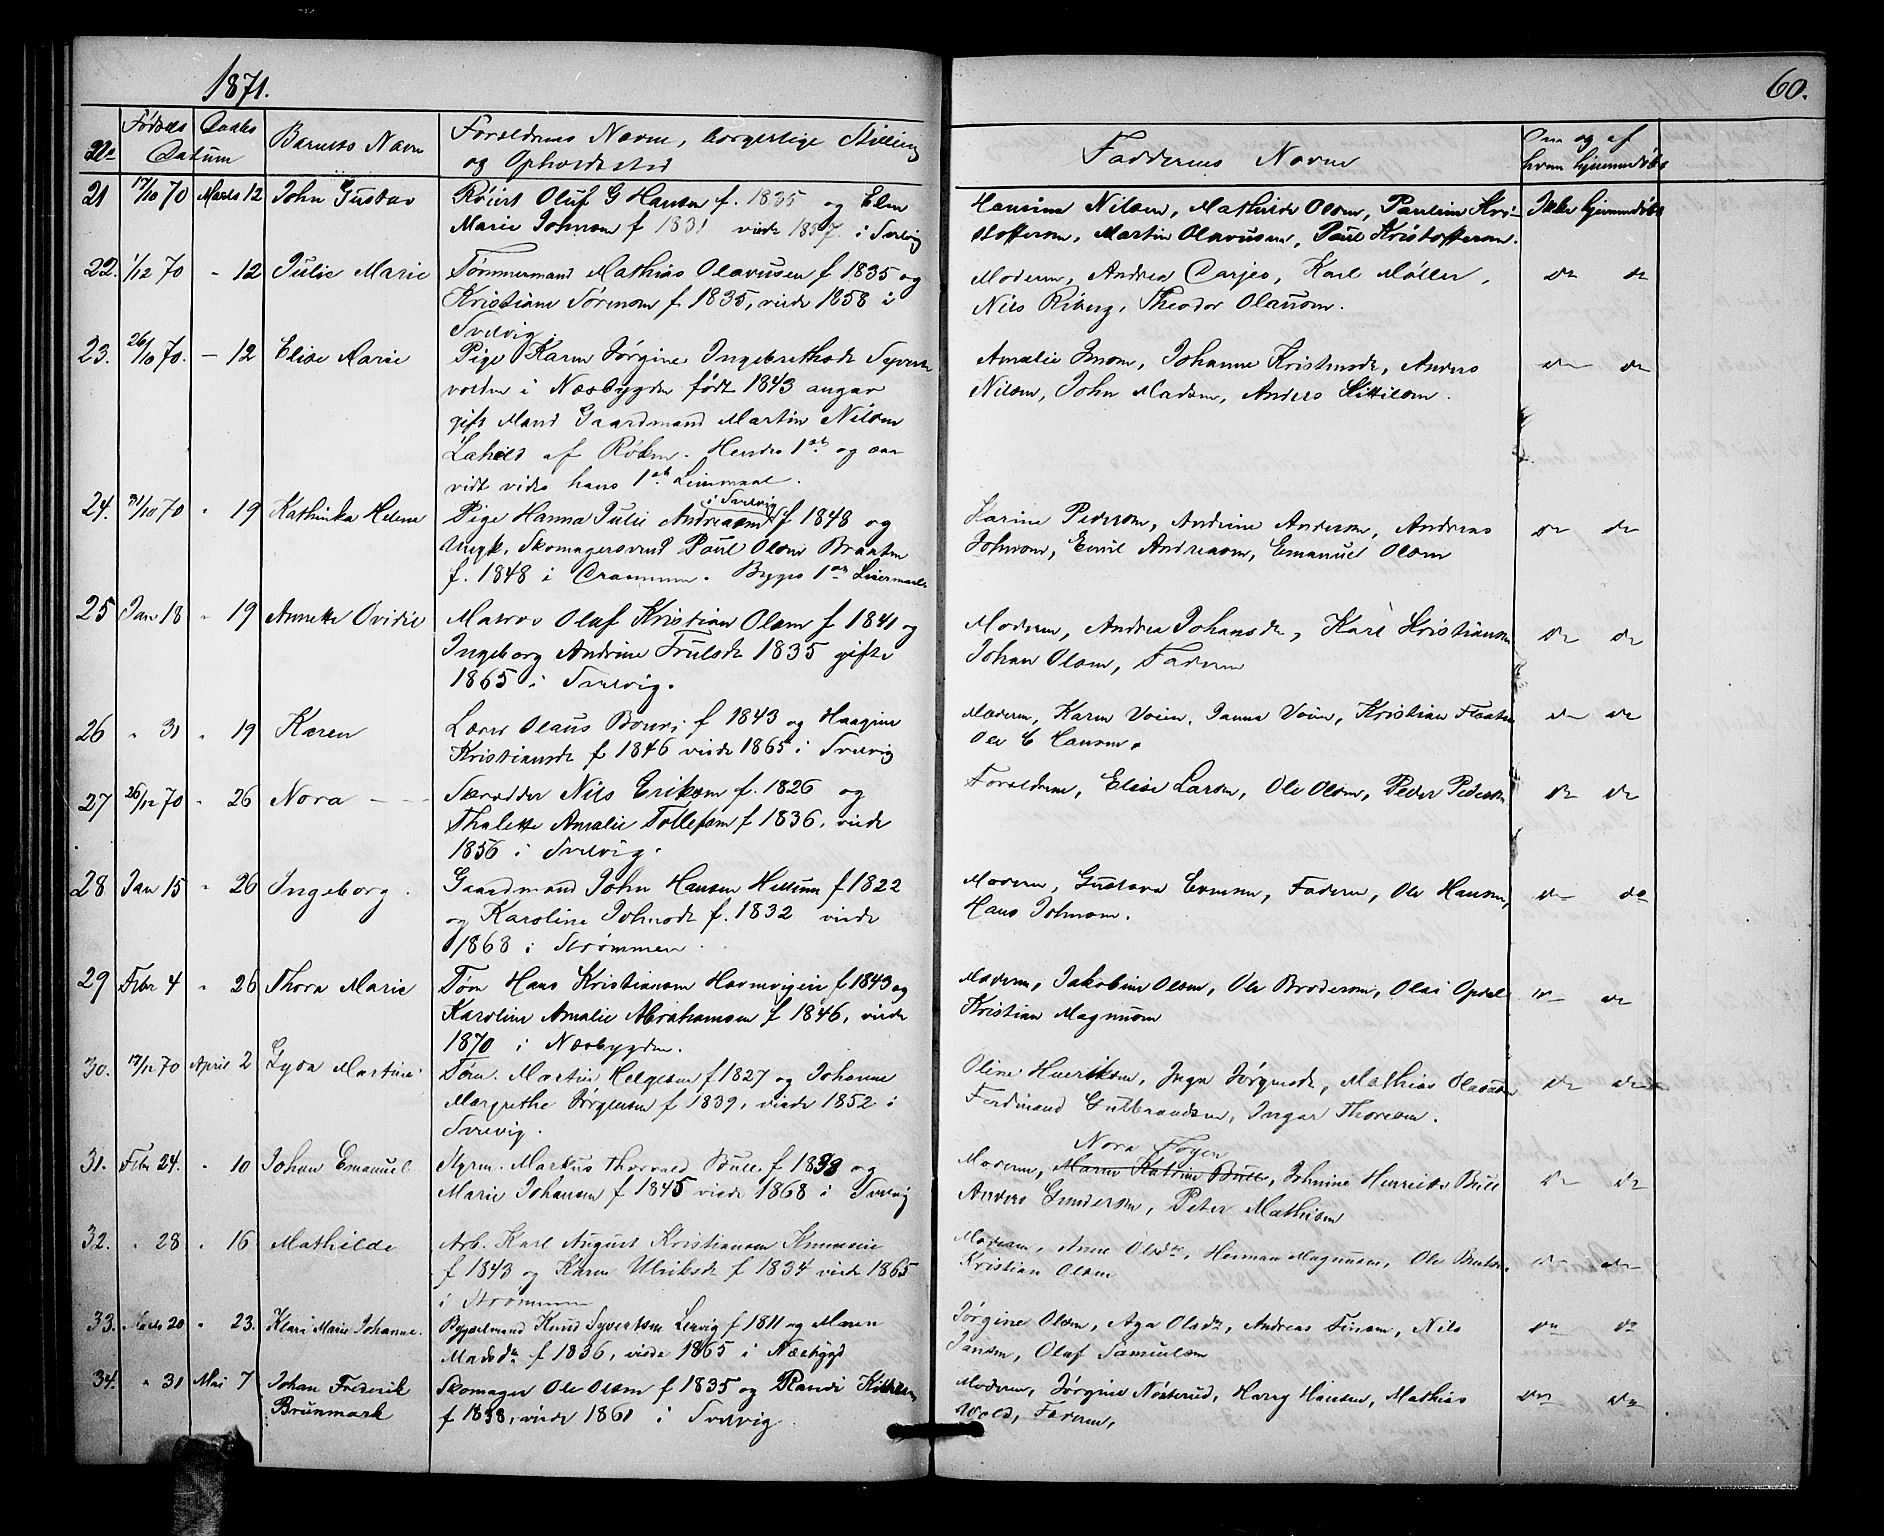 1871.
60.
No Fødsels Daabs Datum Barnets Navn Forældrenes Navne, borgerlige Stilling og Opholdssted Faddernes Navne Om og af hvem hjemmedøbt
21 17/10 70 Marts 12 John Gustav Oluf G Hansen f. 1835 og Elen Hansine Nilsen, Mathilde Olsen, Pauline Kri- Ikke hjemmedøbt
Marie Johnsen f 1831 viede 1857 i Svelvig stoffersen, Martin Olavusen, Paul Kristoffersen.
22. 1/12 70 " 12 Julie Marie Tømmermand Mathias Olavusen f 1835 og Moderen, Andrea Carjes, Karl Møller, do do
Kristiane Sørensen f 1835, viede 1858 i Nils Riberg, Theodor Olausen.
Svelvig
23. 26/10 70. – 12 Elise Marie Pige Karen Jørgine Ingebrethsdt Amalie Jensen, Johanne Kristensdt, Anders do do
i Næsbygden født 1843 angav Nilsen, John Madsen, Anders Kittilsen.
gift Mand Gaardmand Martin Nilsen
af Røken. Hendes 1ste og saa
vidt vides hans 1ste Leiermaal.
24. 31/10 70 " 19 Kathinka Helene Pige Hanna Julie Andreasen i Svelvig f 1848 og Karine Pedersen, Andrine Andersen, Andreas do do
Ungk. Skomagersvend Paul Olsen Braaten Johnsen, Emil Andreasen, Emanuel Olsen
f. 1848 i Drammen. Begges 1ste Leiermaal
25 Jan 18 " 19 Annette Ovidie Matros Oluf Kristian Olsen f 1841 og Moderen, Andrea Johansdt, Karl Kristiansen do do
Ingeborg Andrine Trulsdt 1835 gifte Johan Olsen, Faderen
1865 i Svelvig.
26 " 31 " 19 Karen Lærer Olaus f 1843 og Haagine Moderen, Karen Voien, Janna Voien, Kristian Floaten do do
Kristiansdt f 1846 viede 1865 i Svelvig Ole C Hansen.
27 26/12 70 " 26 Nora – – Skrædder Nils Eriksen f. 1826 og Forældrene, Elise Larsen, Ole Olsen, Peder Pedersen do do
Thalette Amalie Tollefsen f 1836, viede
1856 i Svelvig.
28 Jan 15 " 26 Ingeborg. Gaardmand John Hansen f 1822 Moderen, Gustava Evensen, Faderen, Ole Hansen, do do
og Karoline Johnsdt f. 1832 viede Hans Johnsen.
1868 i Strømmen.
29 Febr 4 " 26 Thora Marie Tøm Hans Kristiansen Havnvigen f 1843 og Moderen, Jakobine Olsen, Ole Brodersen, Olai Opdal do do
Karoline Amalie Abrahamsen f 1846, viede Kristian Magnusen
1870 i Næsbygden.
30. 17/12 70 April 2 Lyda Martine Tøm. Martin Helgesen f 1827 og Johanne Oline Henriksen, Inga Jørgensdt, Mathias Olausen do do
Margrethe Jørgensen f 1839, viede 1852 i Ferdinand Gulbrandsen, Ingar Thoresen.
Svelvig.
31. Febr 24. " 10 Johan Emanuel Styrm. Markus Thorvald Bull f 1838 og Moderen, Nora Fløyen Maren Katrine Bull, Johnine Henriette Bull do do
Marie Johansen f 1845 viede 1868 i Svelvig Anders Gundersen, Peter Mathisen
32. " 28 " 16 Mathilde Arb. Karl August Kristiansen Moderen, Anne Olsdtr, Herman Magnusen, Ole do do
f 1843 og Karen Ulriksdt f 1834 viede 1865 Kristian Olsen
i Strømmen
33. Marts 20 " 23. Klara Marie Johanne. Bygselmand Knud Syvertsen Lervig f 1811 og Maren Jørgine Olsen, Aga Olsdt, Andreas Finsen, Nils do do
Madsdtr f 1836, viede 1865 i Næsbygd Jansen, Oluf Samuelsen
34. " 31 Mai 7 Johan Frederik Skomager Ole Olsen f 1835 og Randi Kittilsen Moderen, Jørgine Nøsterud, Harry Hansen, Mathias do do
Brunmark f 1838, viede 1861 i Svelvig. Wold, Faderen,